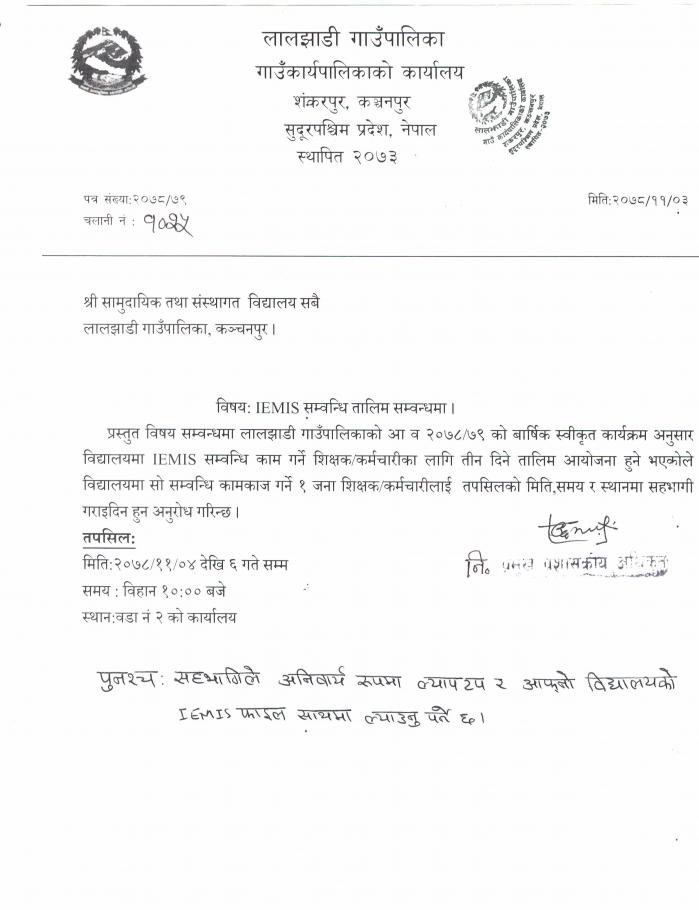 लालझाडी गाउँपालिका
गाउँकार्यपालिकाको कार्यालय
शंकरपुर, कञ्चनपुर
सुदूरपश्चिम प्रदेश, नेपाल
स्थापित २०७३
लालझाडी गाउँपालिका
गाउँ कार्यपालिकाको कार्यालय
शंकरपुर, कञ्चनपुर
सुदूरपश्चिम प्रदेश, नेपाल
स्थापित-२०७३
पत्र संख्या:२०७८/७९
मिति:२०७८/११/०३
चलानी नं :
श्री सामुदायिक तथा संस्थागत विद्यालय सबै
लालझाडी गाउँपालिका, कञ्चनपुर ।
विषय: IEMIS सम्वन्धि तालिम सम्वन्धमा ।
प्रस्तुत विषय सम्वन्धमा लालझाडी गाउँपालिकाको आ व २०७८/७९ को बार्षिक स्वीकृत कार्यक्रम अनुसार
विद्यालयमा IEMIS सम्वन्धि काम गर्ने शिक्षक/कर्मचारीका लागि तीन दिने तालिम आयोजना हुने भएकोले
विद्यालयमा सो सम्वन्धि कामकाज गर्ने १ जना शिक्षक/कर्मचारीलाई तपसिलको मिति,समय र स्थानमा सहभागी
गराइदिन हुन अनुरोध गरिन्छ ।
तपसिल:
मिति:२०७८/११/०४ देखि ६ गते सम्म
नि. प्रमुख प्रशासकीय अधिकृत
समय : विहान १०:०० बजे
स्थान:वडा नं २ को कार्यालय
पुनश्च: सहभागिले अनिवार्य रूपमा ल्यापटप र आफ्नो विद्यालयको
IEMIS फाइल साथमा ल्याउनु पर्ने छ।